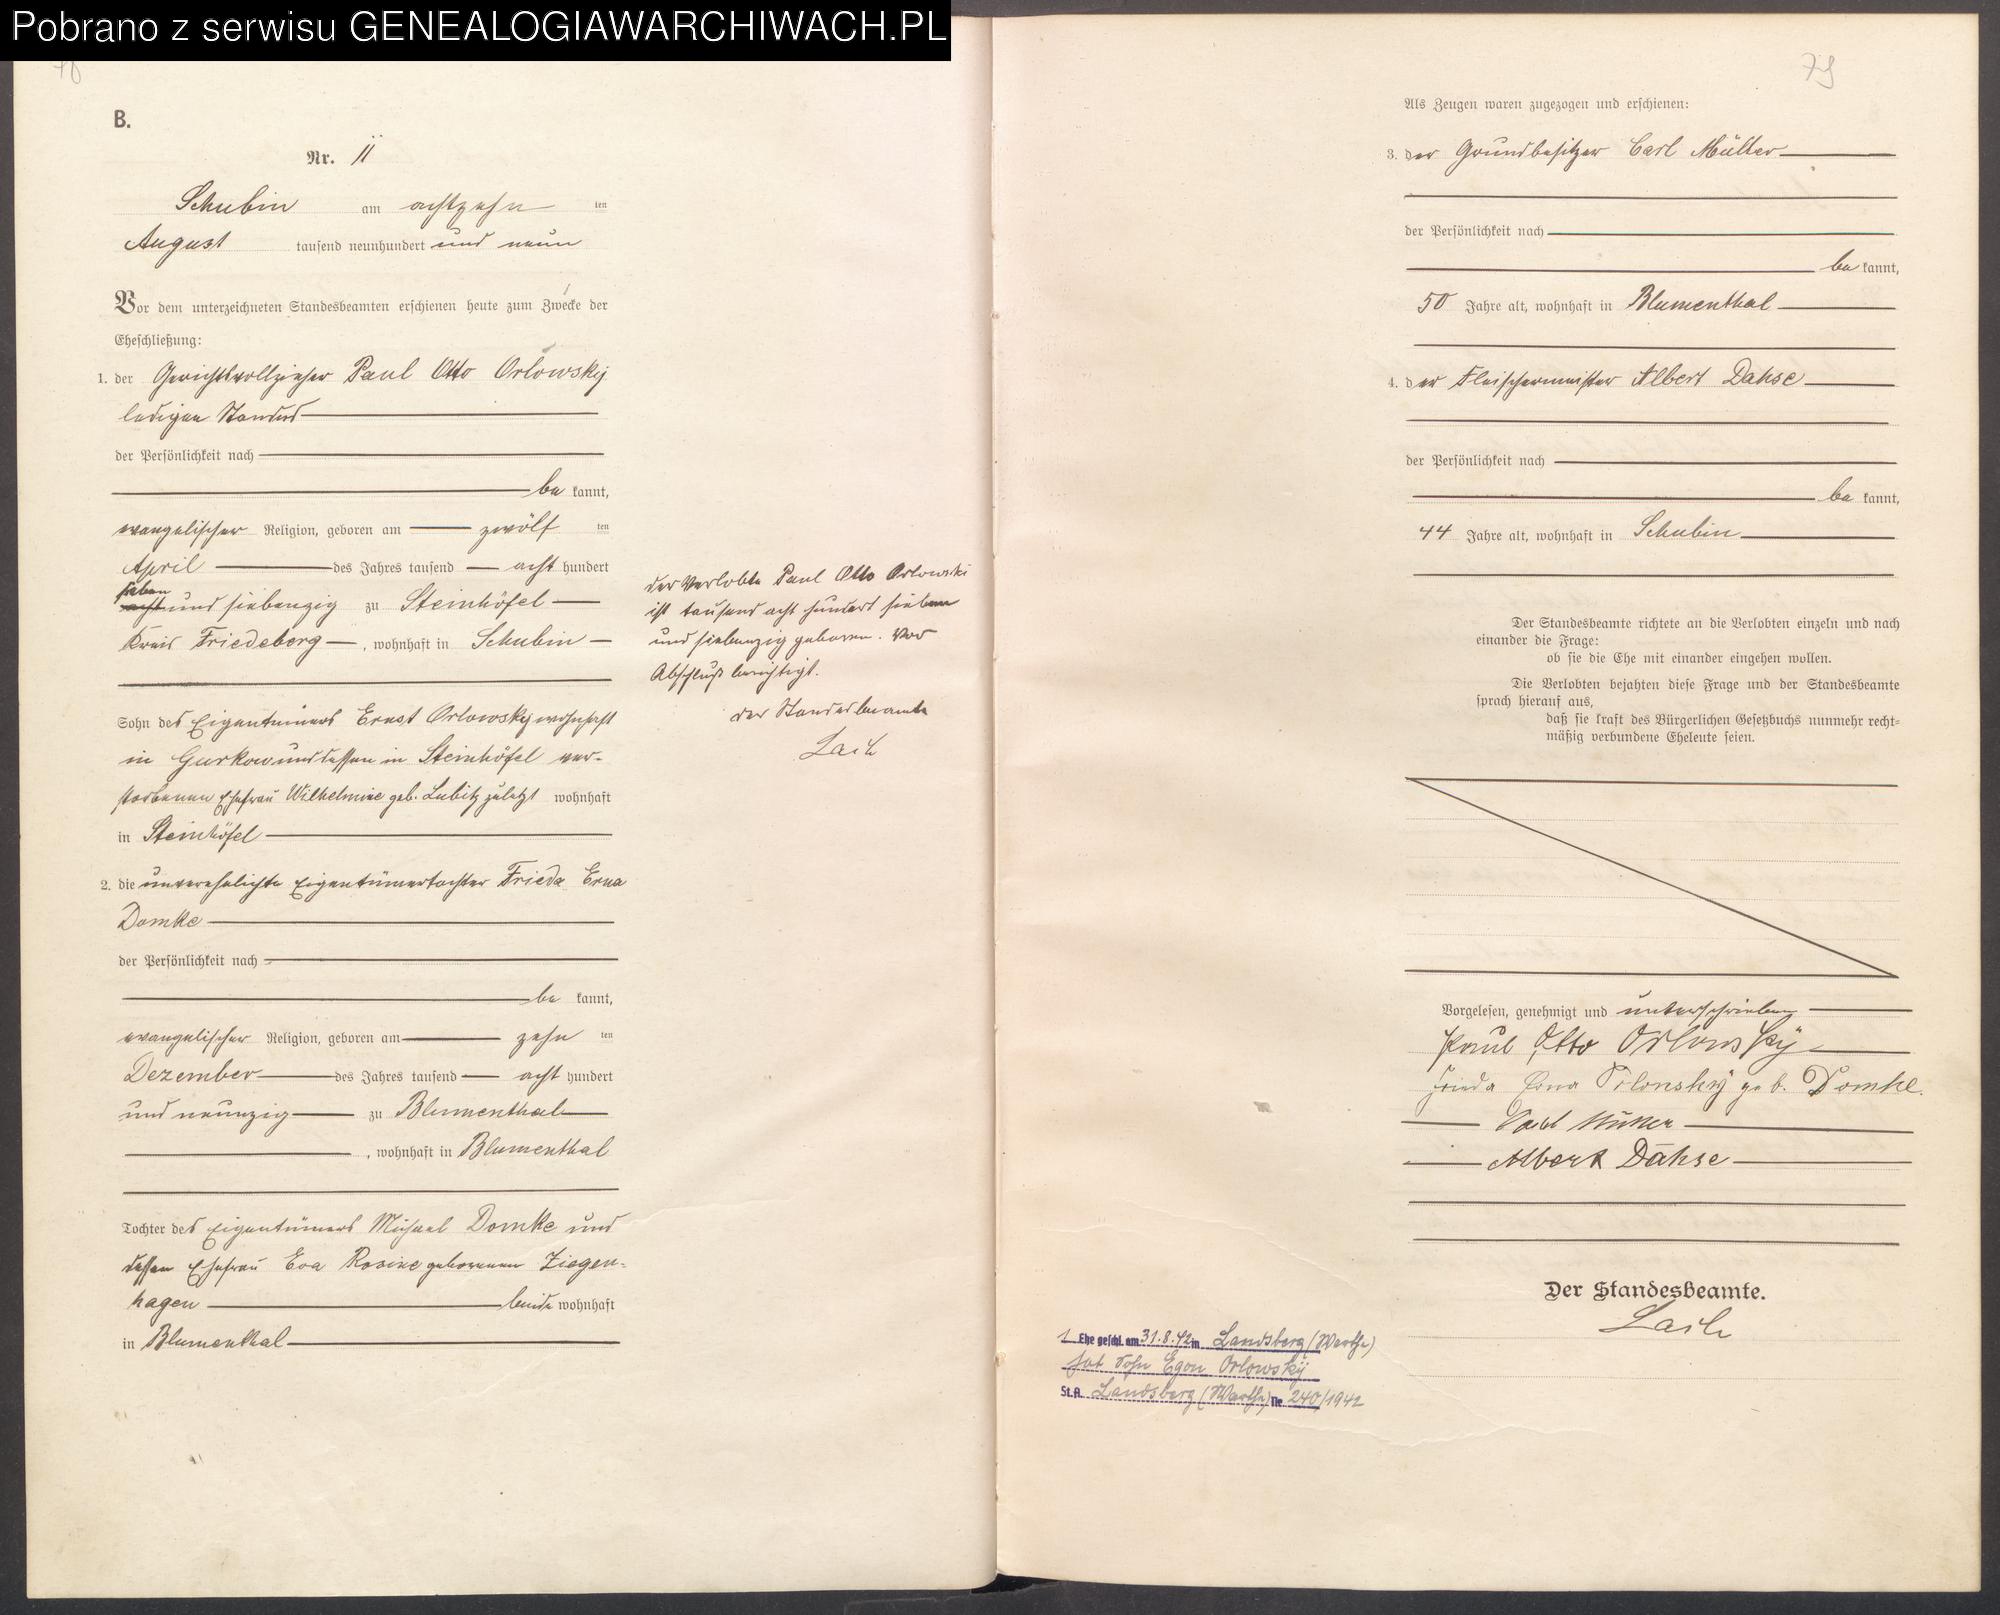 Pobrano z serwisu GENEALOGIAWARCHIWACH.PL
B.
Nr. 11
Schubin am achtzehn ten
August tausend neunhundert und neun
Vor dem unterzeichneten Standesbeamten erschienen heute zum Zwecke der
Eheschließung:
1. der Gerichtsvollzieher Paul Otto Orlowsky
ledigen Standes
der Persönlichkeit nach
be kannt,
evangelischer Religion, geboren am zwölf ten
April des Jahres tausend acht hundert
sieben
acht und siebenzig zu Steinhöfel
Kreis Friedeberg, wohnhaft in Schubin
Sohn des Eigentümers Ernst Orlowsky wohnhaft
in Gurkow und dessen in Steinhöfel ver-
storbenen Ehefrau Wilhelmine geb. Lubitz zuletzt wohnhaft
in Steinhöfel
2. die unverehelichte Eigentümertochter Frieda Erna
Domke
der Persönlichkeit nach
be kannt,
evangelischer Religion, geboren am zehn ten
Dezember des Jahres tausend acht hundert
und neunzig zu Blumenthal
, wohnhaft in Blumenthal
Tochter des Eigentümers Michael Domke und
dessen Ehefrau Eva Rosine geborenen Ziegen-
hagen beide wohnhaft
in Blumenthal
der Verlobte Paul Otto Orlowski
ist tausend acht hundert sieben
und siebenzig geboren. Vor
Abschluß berichtigt.
der Standesbeamte
79
Als Zeugen waren zugezogen und erschienen:
3. der Grundbesitzer Carl Müller
der Persönlichkeit nach
be kannt,
50 Jahre alt, wohnhaft in Blumenthal
4. der Fleischermeister Albert Dahse
der Persönlichkeit nach
be kannt,
44 Jahre alt, wohnhaft in Schubin
Der Standesbeamte richtete an die Verlobten einzeln und nach
einander die Frage:
ob sie die Ehe mit einander eingehen wollen.
Die Verlobten bejahten diese Frage und der Standesbeamte
sprach hierauf aus,
daß sie kraft des Bürgerlichen Gesetzbuchs nunmehr recht-
mäßig verbundene Eheleute seien.
Vorgelesen, genehmigt und unterschrieben
Paul Otto Orlowsky
Frieda Erna Orlowsky geb. Domke.
Carl Müller
Albert Dahse
Der Standesbeamte.
1 Ehe geschl. am 31.8.42 in Landsberg (Warthe)
hat Sohn Egon Orlowsky
St.A. Landsberg (Warthe) Nr 240/1942